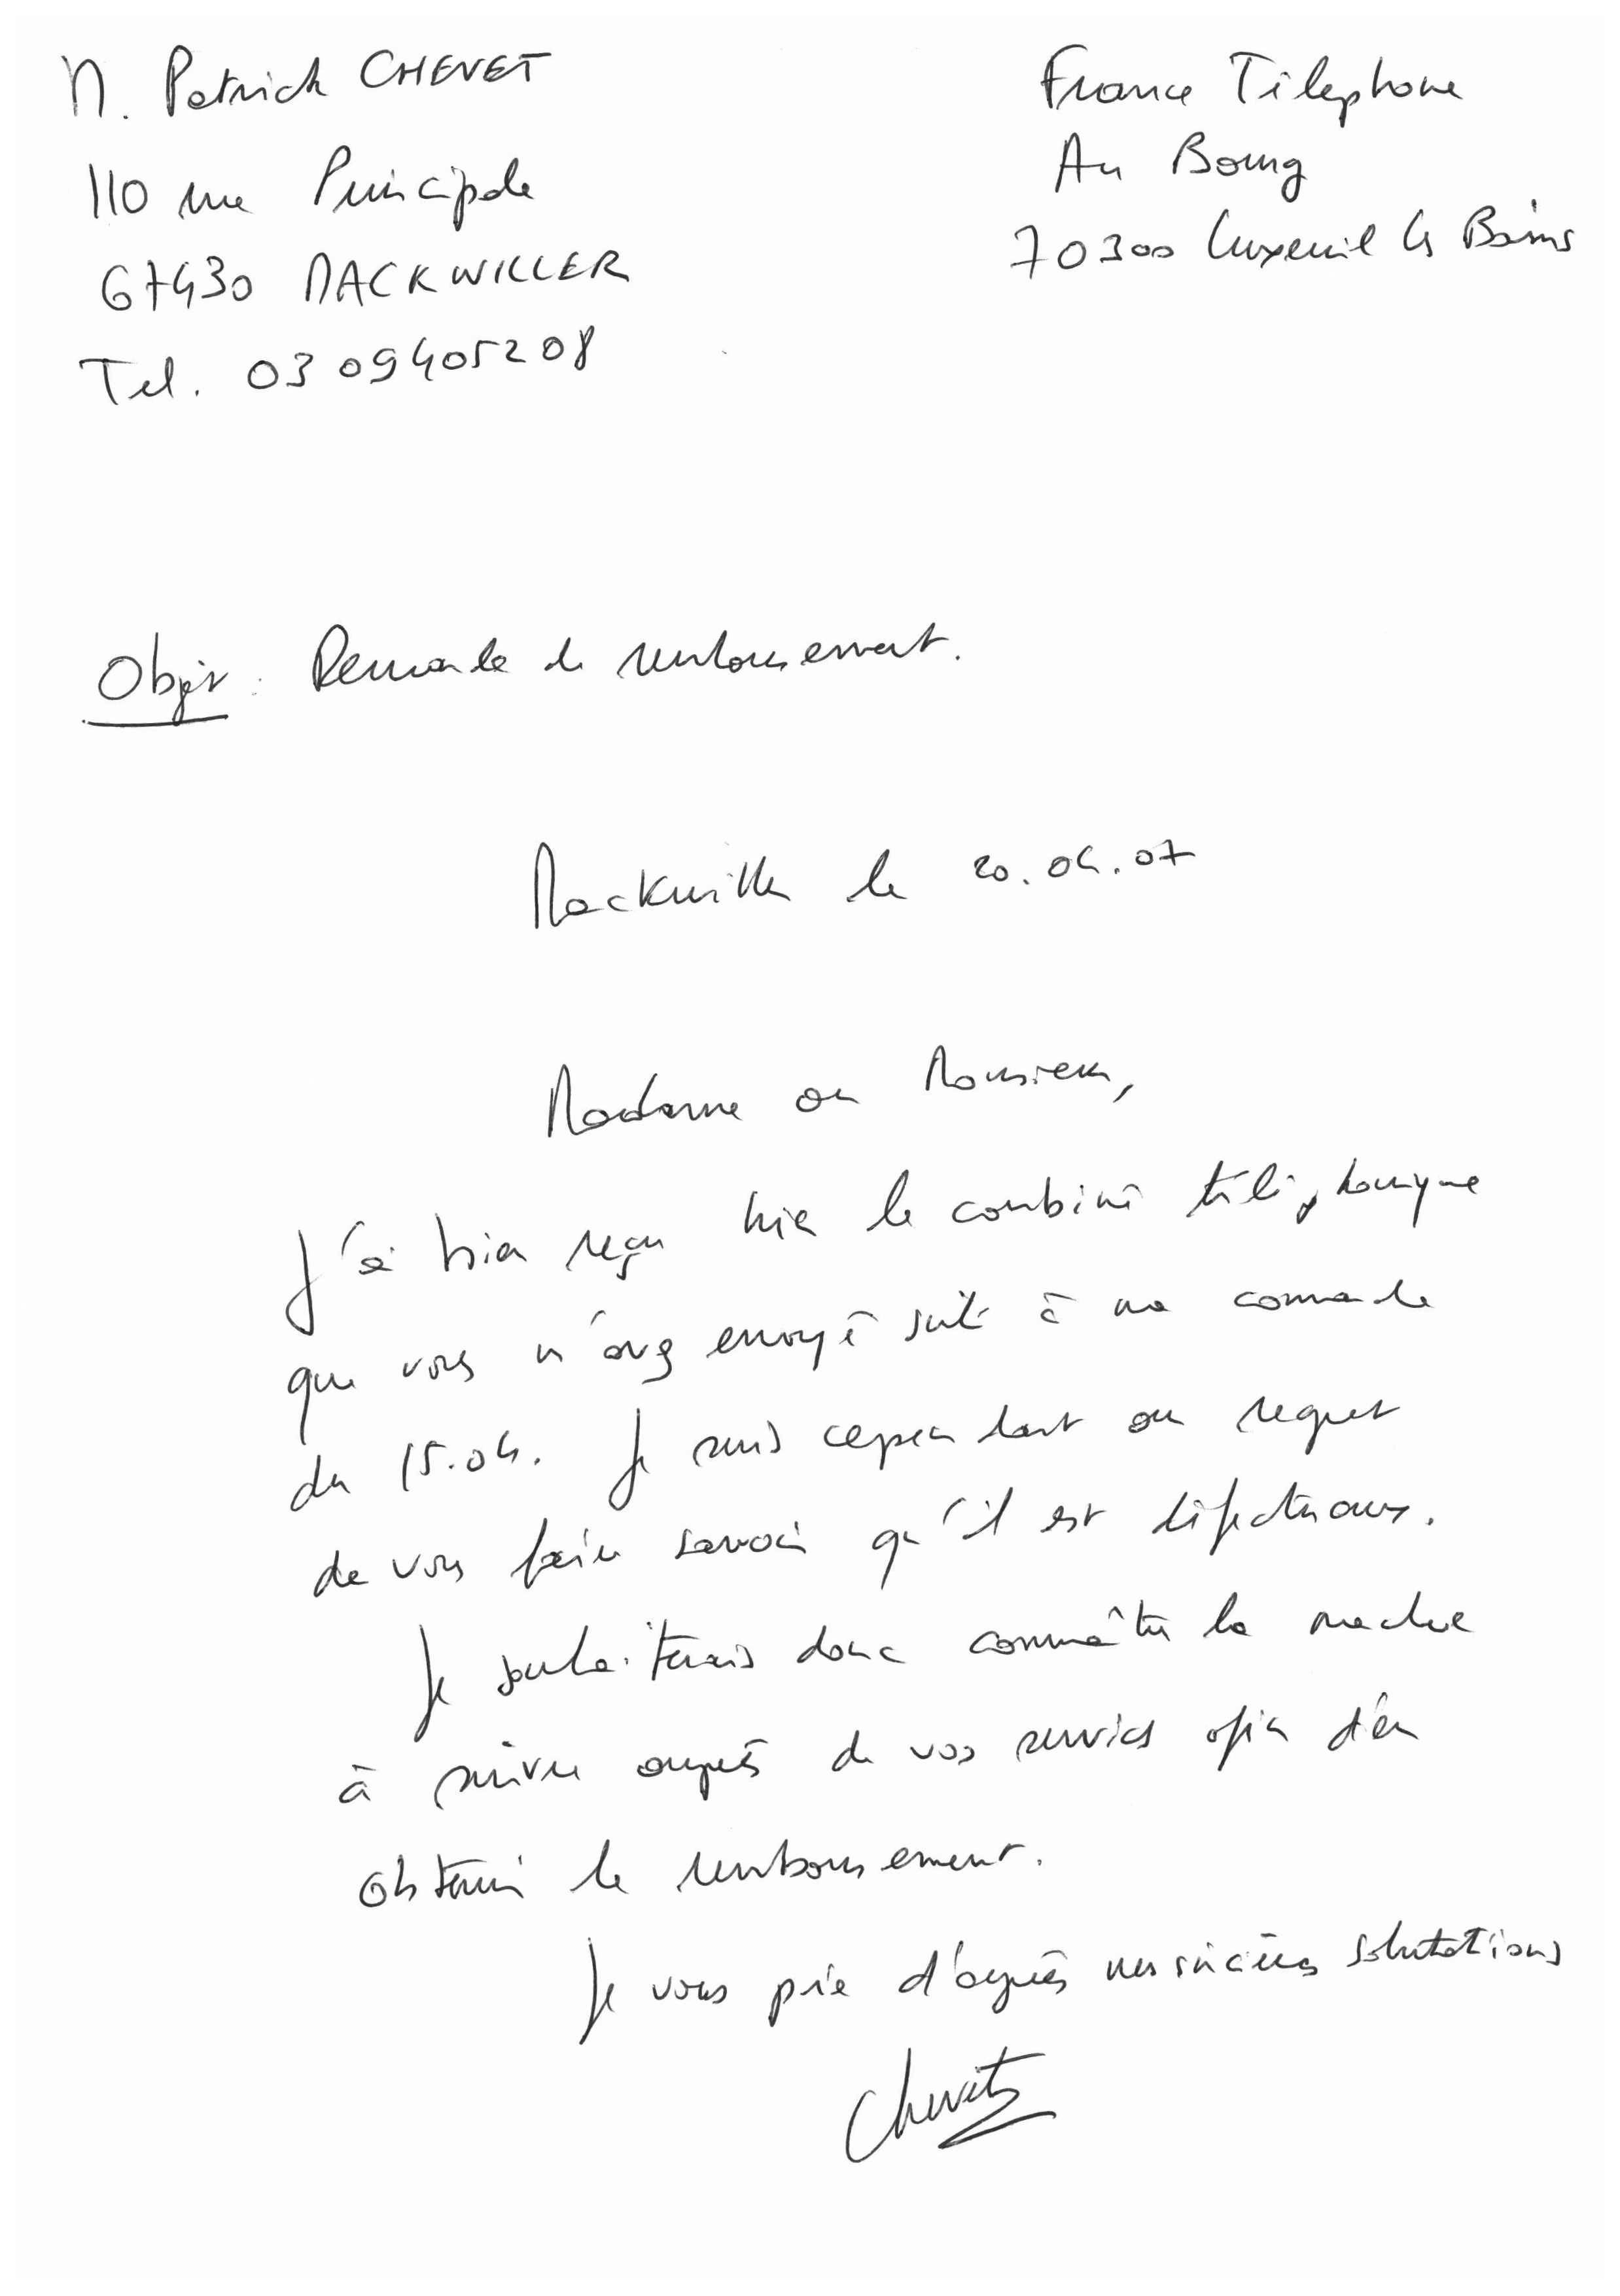 M. Patrick CHEVET
110 rue Principale
67430 MACKWILLER
Tel. 03 09405208
France Téléphone
Au Bourg
70300 Luxeuil les Bains
Objet : Demande de remboursement.
Mackwiller le 20.04.07
Madame ou Monsieur,
J'ai bien reçu hier le combiné téléphonique
que vous m'avez envoyé suite à ma commande
du 15.04. Je suis cependant au regret
de vous faire savoir qu'il est défectueux.
Je souhaiterais donc connaître la marche
à suivre auprès de vos services afin d'en
obtenir le remboursement.
Je vous prie d'agréer mes sincères salutations
Chevet